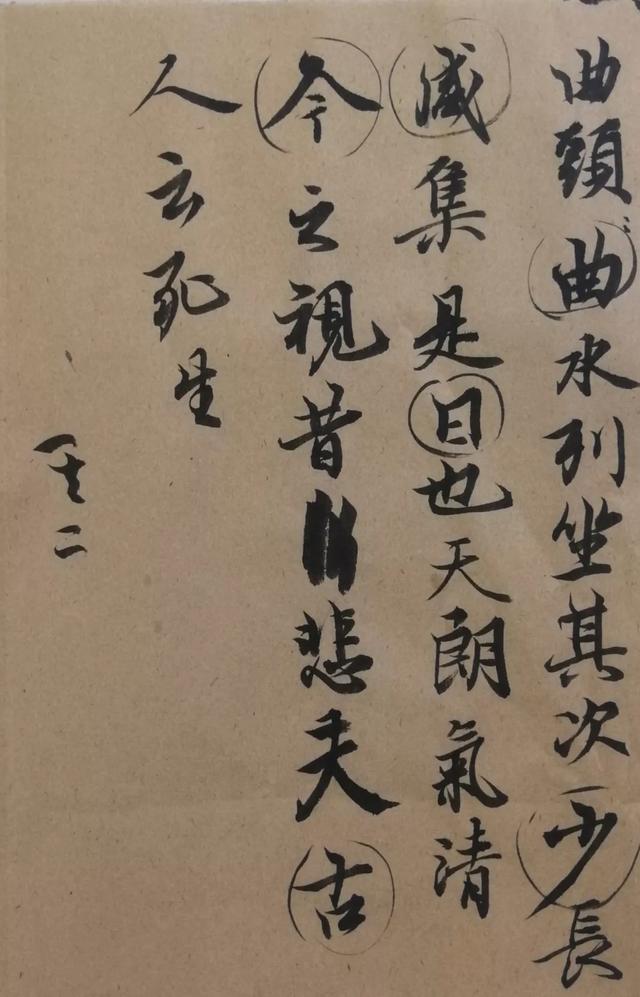 曲水列坐其次少長
咸集是日也天朗氣清
今之視昔悲夫古
人云死生
二